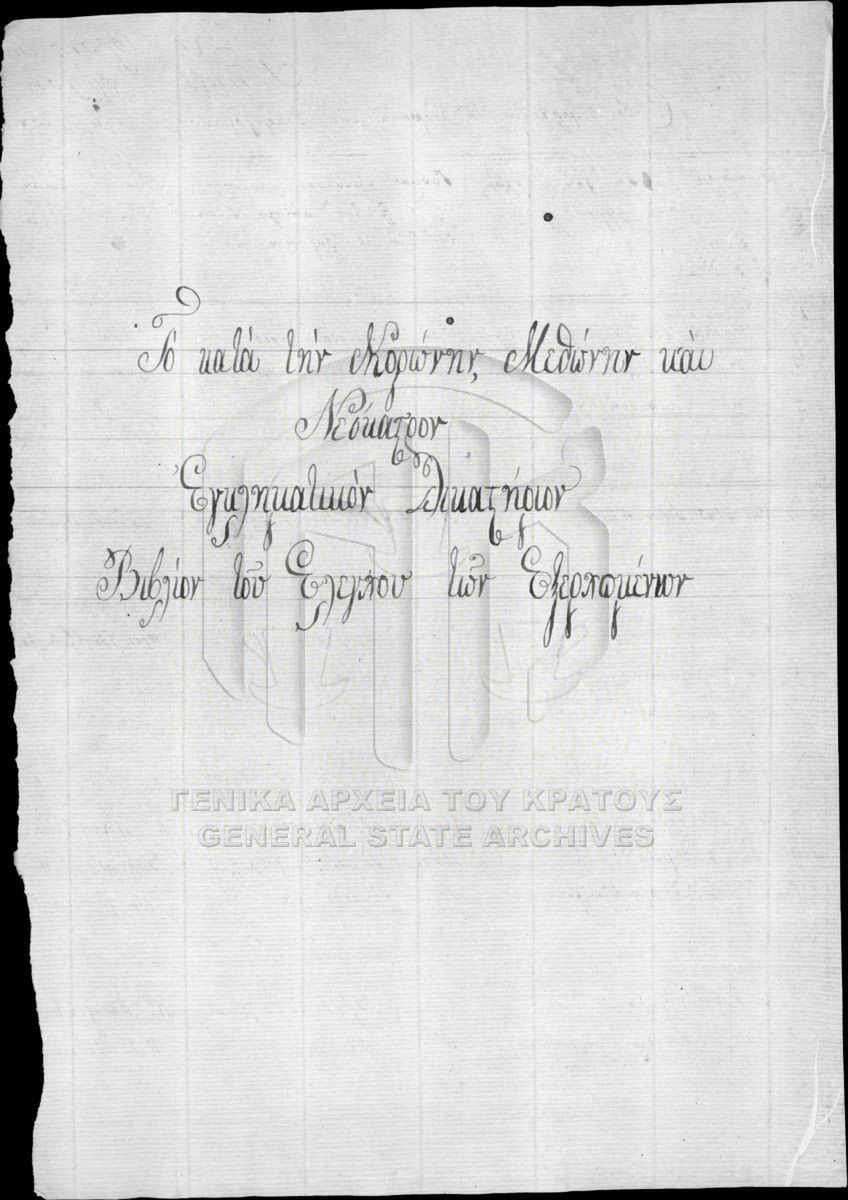 Τὸ κατὰ τὴν Κορώνην, Μεθώνην καὶ
Νεόκαστρον
Ἐγκληματικόν Δικαστήριον
Βιβλίον τοῦ Ἐλέγχου τῶν
ΓΕΝΙΚΑ ΑΡΧΕΙΑ ΤΟΥ ΚΡΑΤΟΥΣ
GENERAL STATE ARCHIVES